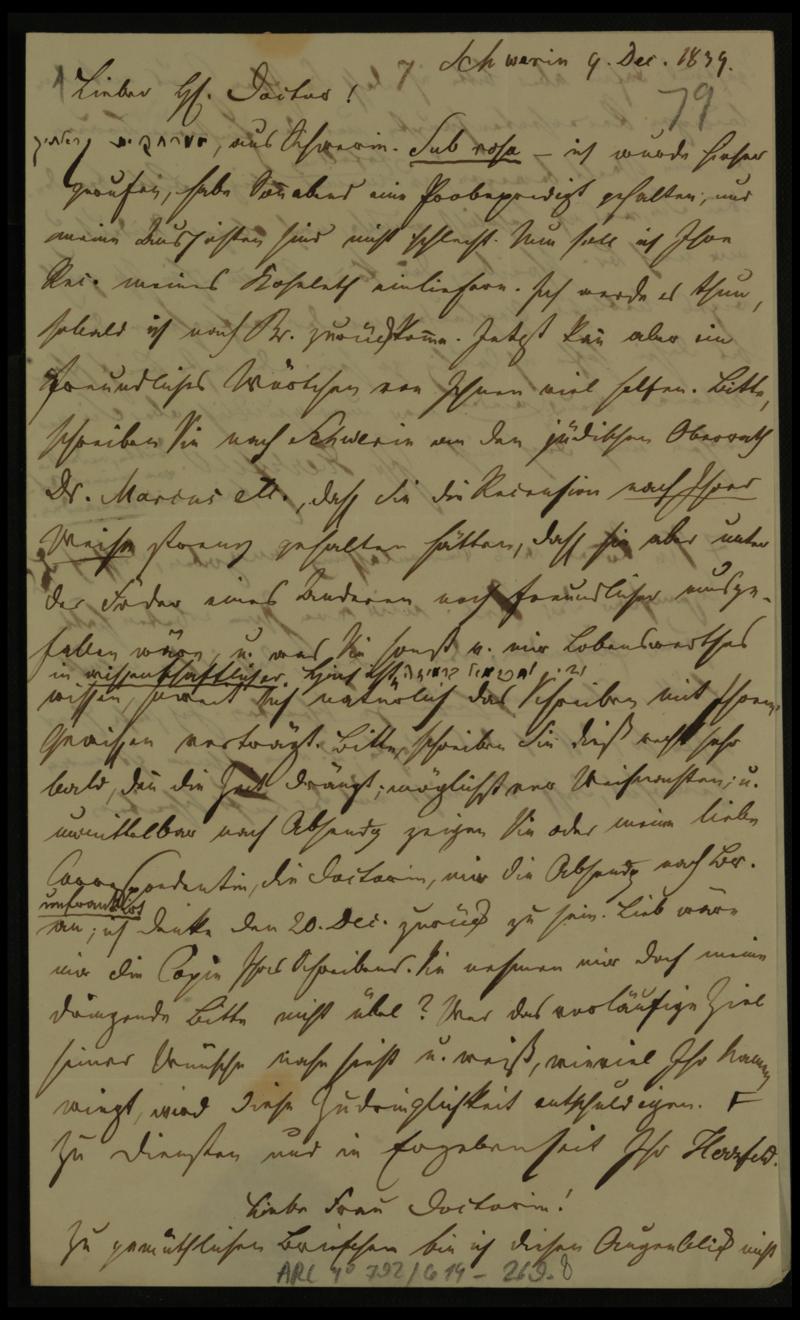 7 Schwerin 9. Dec. 1839.
79
Lieber H. Doctor!
aus Schwerin. Sub rosa – ich wurde hieher
gerufen, habe Sonabend eine Probepredigt gehalten, und
meine Aussichten sind nicht schlecht. Nun soll ich Ihre
Rec. meines Koheleth einliefern. Ich werde es thun,
sobald ich nach Br. zurückkomme. Jetzt kan aber ein
freundliches Wörtchen von Ihnen viel helfen. Bitte,
schreiben Sie nach Schwerin an den jüdischen Oberrath
Dr. Marcus etc., daß Sie die Recension nach Ihrer
Weise streng gehalten hätten, daß sie aber unter
der Feder eines Anderen noch freundlicher ausge-
fallen wäre, u. was Sie sonst v. mir Lobenswerthes
in wissenschaftlicher
wissen, soweit sich natürlich das Schreiben mit Ihrem
Gewissen verträgt. Bitte, schreiben Sie dieß recht sehr
bald, den die Zeit drängt; möglichst vor Weihnachten; u.
unmittelbar nach Absendg zeigen Sie oder meine liebe
Correspondentin, die Doctorin, mir die Absendg nach Br.
unfrankirt
an; ich denke den 20. Dec. zurück zu sein. Lieb wäre
mir die Copie Ihres Schreibens. Sie nehmen mir doch meine
drängende Bitte nicht übel? Wer das vorläufige Ziel
seiner Wünsche nahe sieht u. weiß, wieviel Ihr Name
wiegt, wird diese Zudringlichkeit entschuldigen.
Zu Diensten und in Ergebenheit Ihr Herzfeld.
Liebe Frau Doctorin!
Zu gemüthlichen Briefchen bin ich diesen Augenblick nicht
ARC 4° 792/G 14 - 269.8